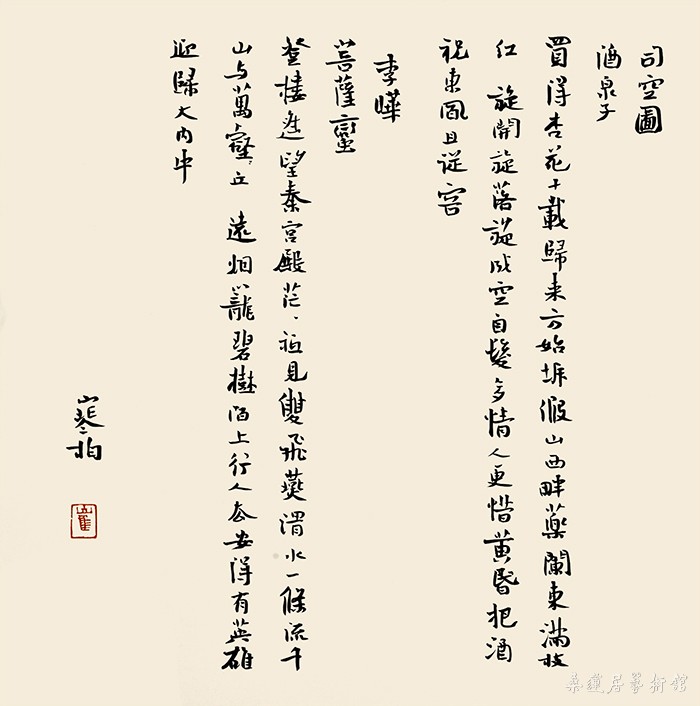 司空圖
酒泉子
買得杏花十載歸來方始坼假山西畔藥闌東滿枝
紅 旋開旋落旋成空白髮多情人更惜黃昏把酒
祝東風且從容
李曄
菩薩蠻
登樓遙望秦宮殿茫茫祗見雙飛燕渭水一條流千
山与萬壑丘 遠烟籠碧樹陌上行人去安得有英雄
迎歸大內中
崔寒柏
崔
桑蓮居藝術館